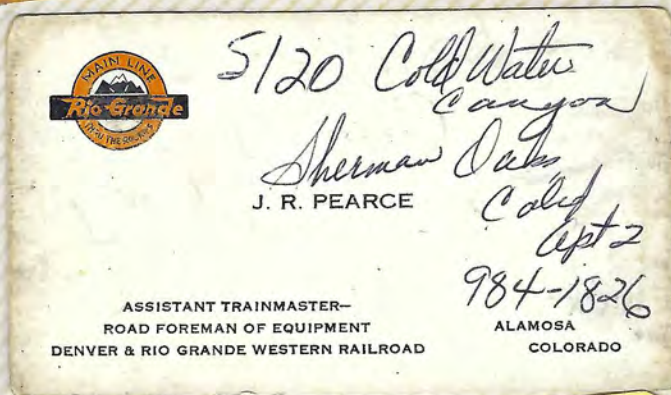 MAIN LINE
Rio Grande
THRU THE ROCKIES
5120 Cold Water
Canyon
Sherman Oaks
J. R. PEARCE
Calif
Apt 2
984-1826
ASSISTANT TRAINMASTER—
ROAD FOREMAN OF EQUIPMENT
DENVER & RIO GRANDE WESTERN RAILROAD
ALAMOSA
COLORADO